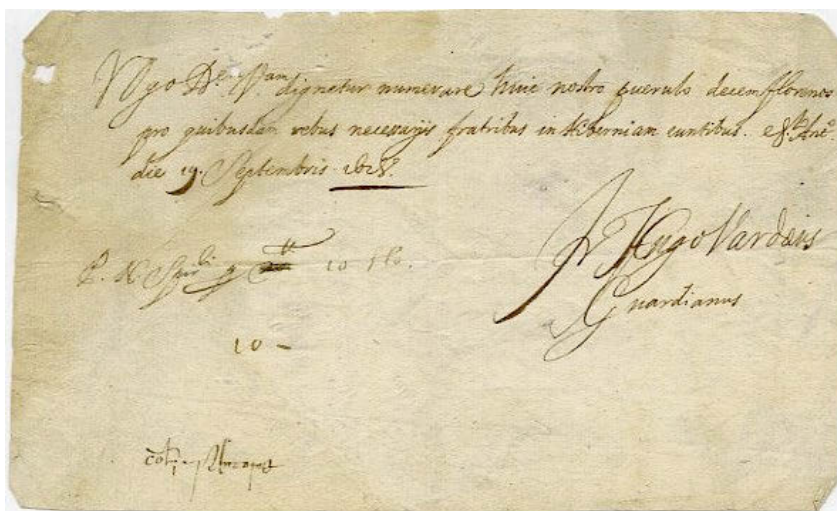 Rogo D.em V.am dignetur numerare huic nostro puerulo decem florenos
pro quibusdam rebus necessarijs fratribus in Hiberniam euntibus.
die 19. Septembris 1628.
10 flo.
Fr Hugo Vardæus
Guardianus
10 -